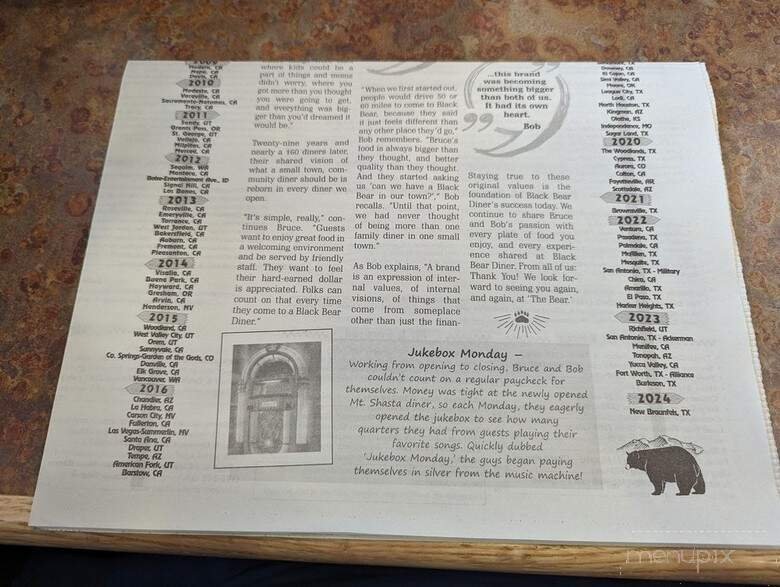 2009
Modesto, CA
Napa, CA
Davis, CA
2010
Modesto, CA
Vacaville, CA
Sacramento-Natomas, CA
Tracy, CA
2011
Sandy, UT
Grants Pass, OR
St. George, UT
Vallejo, CA
Milpitas, CA
Merced, CA
2012
Sequim, WA
Manteca, CA
Boise-Entertainment Ave., ID
Signal Hill, CA
Los Banos, CA
2013
Roseville, CA
Emeryville, CA
Torrance, CA
West Jordan, UT
Bakersfield, CA
Auburn, CA
Fremont, CA
Pleasanton, CA
2014
Visalia, CA
Buena Park, CA
Hayward, CA
Gresham, OR
Arvin, CA
Henderson, NV
2015
Woodland, CA
West Valley City, UT
Orem, UT
Sunnyvale, CA
Co. Springs-Garden of the Gods, CO
Danville, CA
Elk Grove, CA
Vancouver, WA
2016
Chandler, AZ
La Habra, CA
Carson City, NV
Fullerton, CA
Las Vegas-Summerlin, NV
Santa Ana, CA
Draper, UT
Tempe, AZ
American Fork, UT
Barstow, CA
where kids could be a
part of things and moms
didn't worry, where you
got more than you thought
you were going to get,
and everything was big-
ger than you'd dreamed it
would be."
Twenty-nine years and
nearly a 160 diners later,
their shared vision of
what a small town, com-
munity diner should be is
reborn in every diner we
open.
"It's simple, really," con-
tinues Bruce. "Guests
want to enjoy great food in
a welcoming environment
and be served by friendly
staff. They want to feel
their hard-earned dollar
is appreciated. Folks can
count on that every time
they come to a Black Bear
Diner."
"When we first started out,
people would drive 50 or
60 miles to come to Black
Bear, because they said
it just feels different than
any other place they'd go,"
Bob remembers. "Bruce's
food is always bigger than
they thought, and better
quality than they thought.
And they started asking
us 'can we have a Black
Bear in our town?'," Bob
recalls. "Until that point,
we had never thought
of being more than one
family diner in one small
town."
As Bob explains, "A brand
is an expression of inter-
nal values, of internal
visions, of things that
come from someplace
other than just the finan-
...this brand
was becoming
something bigger
than both of us.
It had its own
heart.
Bob
Staying true to these
original values is the
foundation of Black Bear
Diner's success today. We
continue to share Bruce
and Bob's passion with
every plate of food you
enjoy, and every experi-
ence shared at Black
Bear Diner. From all of us:
Thank You! We look for-
ward to seeing you again,
and again, at 'The Bear.'
Jukebox Monday –
Working from opening to closing, Bruce and Bob
couldn't count on a regular paycheck for
themselves. Money was tight at the newly opened
Mt. Shasta diner, so each Monday, they eagerly
opened the jukebox to see how many
quarters they had from guests playing their
favorite songs. Quickly dubbed
'Jukebox Monday,' the guys began paying
themselves in silver from the music machine!
Downey, CA
El Cajon, CA
Simi Valley, CA
Moore, OK
League City, TX
Lodi, CA
North Houston, TX
Kingman, AZ
Olathe, KS
Independence, MO
Sugar Land, TX
2020
The Woodlands, TX
Cypress, TX
Aurora, CO
Colton, CA
Fayetteville, AR
Scottsdale, AZ
2021
Brownsville, TX
2022
Ventura, CA
Pasadena, TX
Palmdale, CA
McAllen, TX
Mesquite, TX
San Antonio, TX - Military
Chico, CA
Amarillo, TX
El Paso, TX
Harker Heights, TX
2023
Richfield, UT
San Antonio, TX - Ackerman
Menifee, CA
Tonopah, AZ
Yucca Valley, CA
Fort Worth, TX - Alliance
Burleson, TX
2024
New Braunfels, TX
menupix